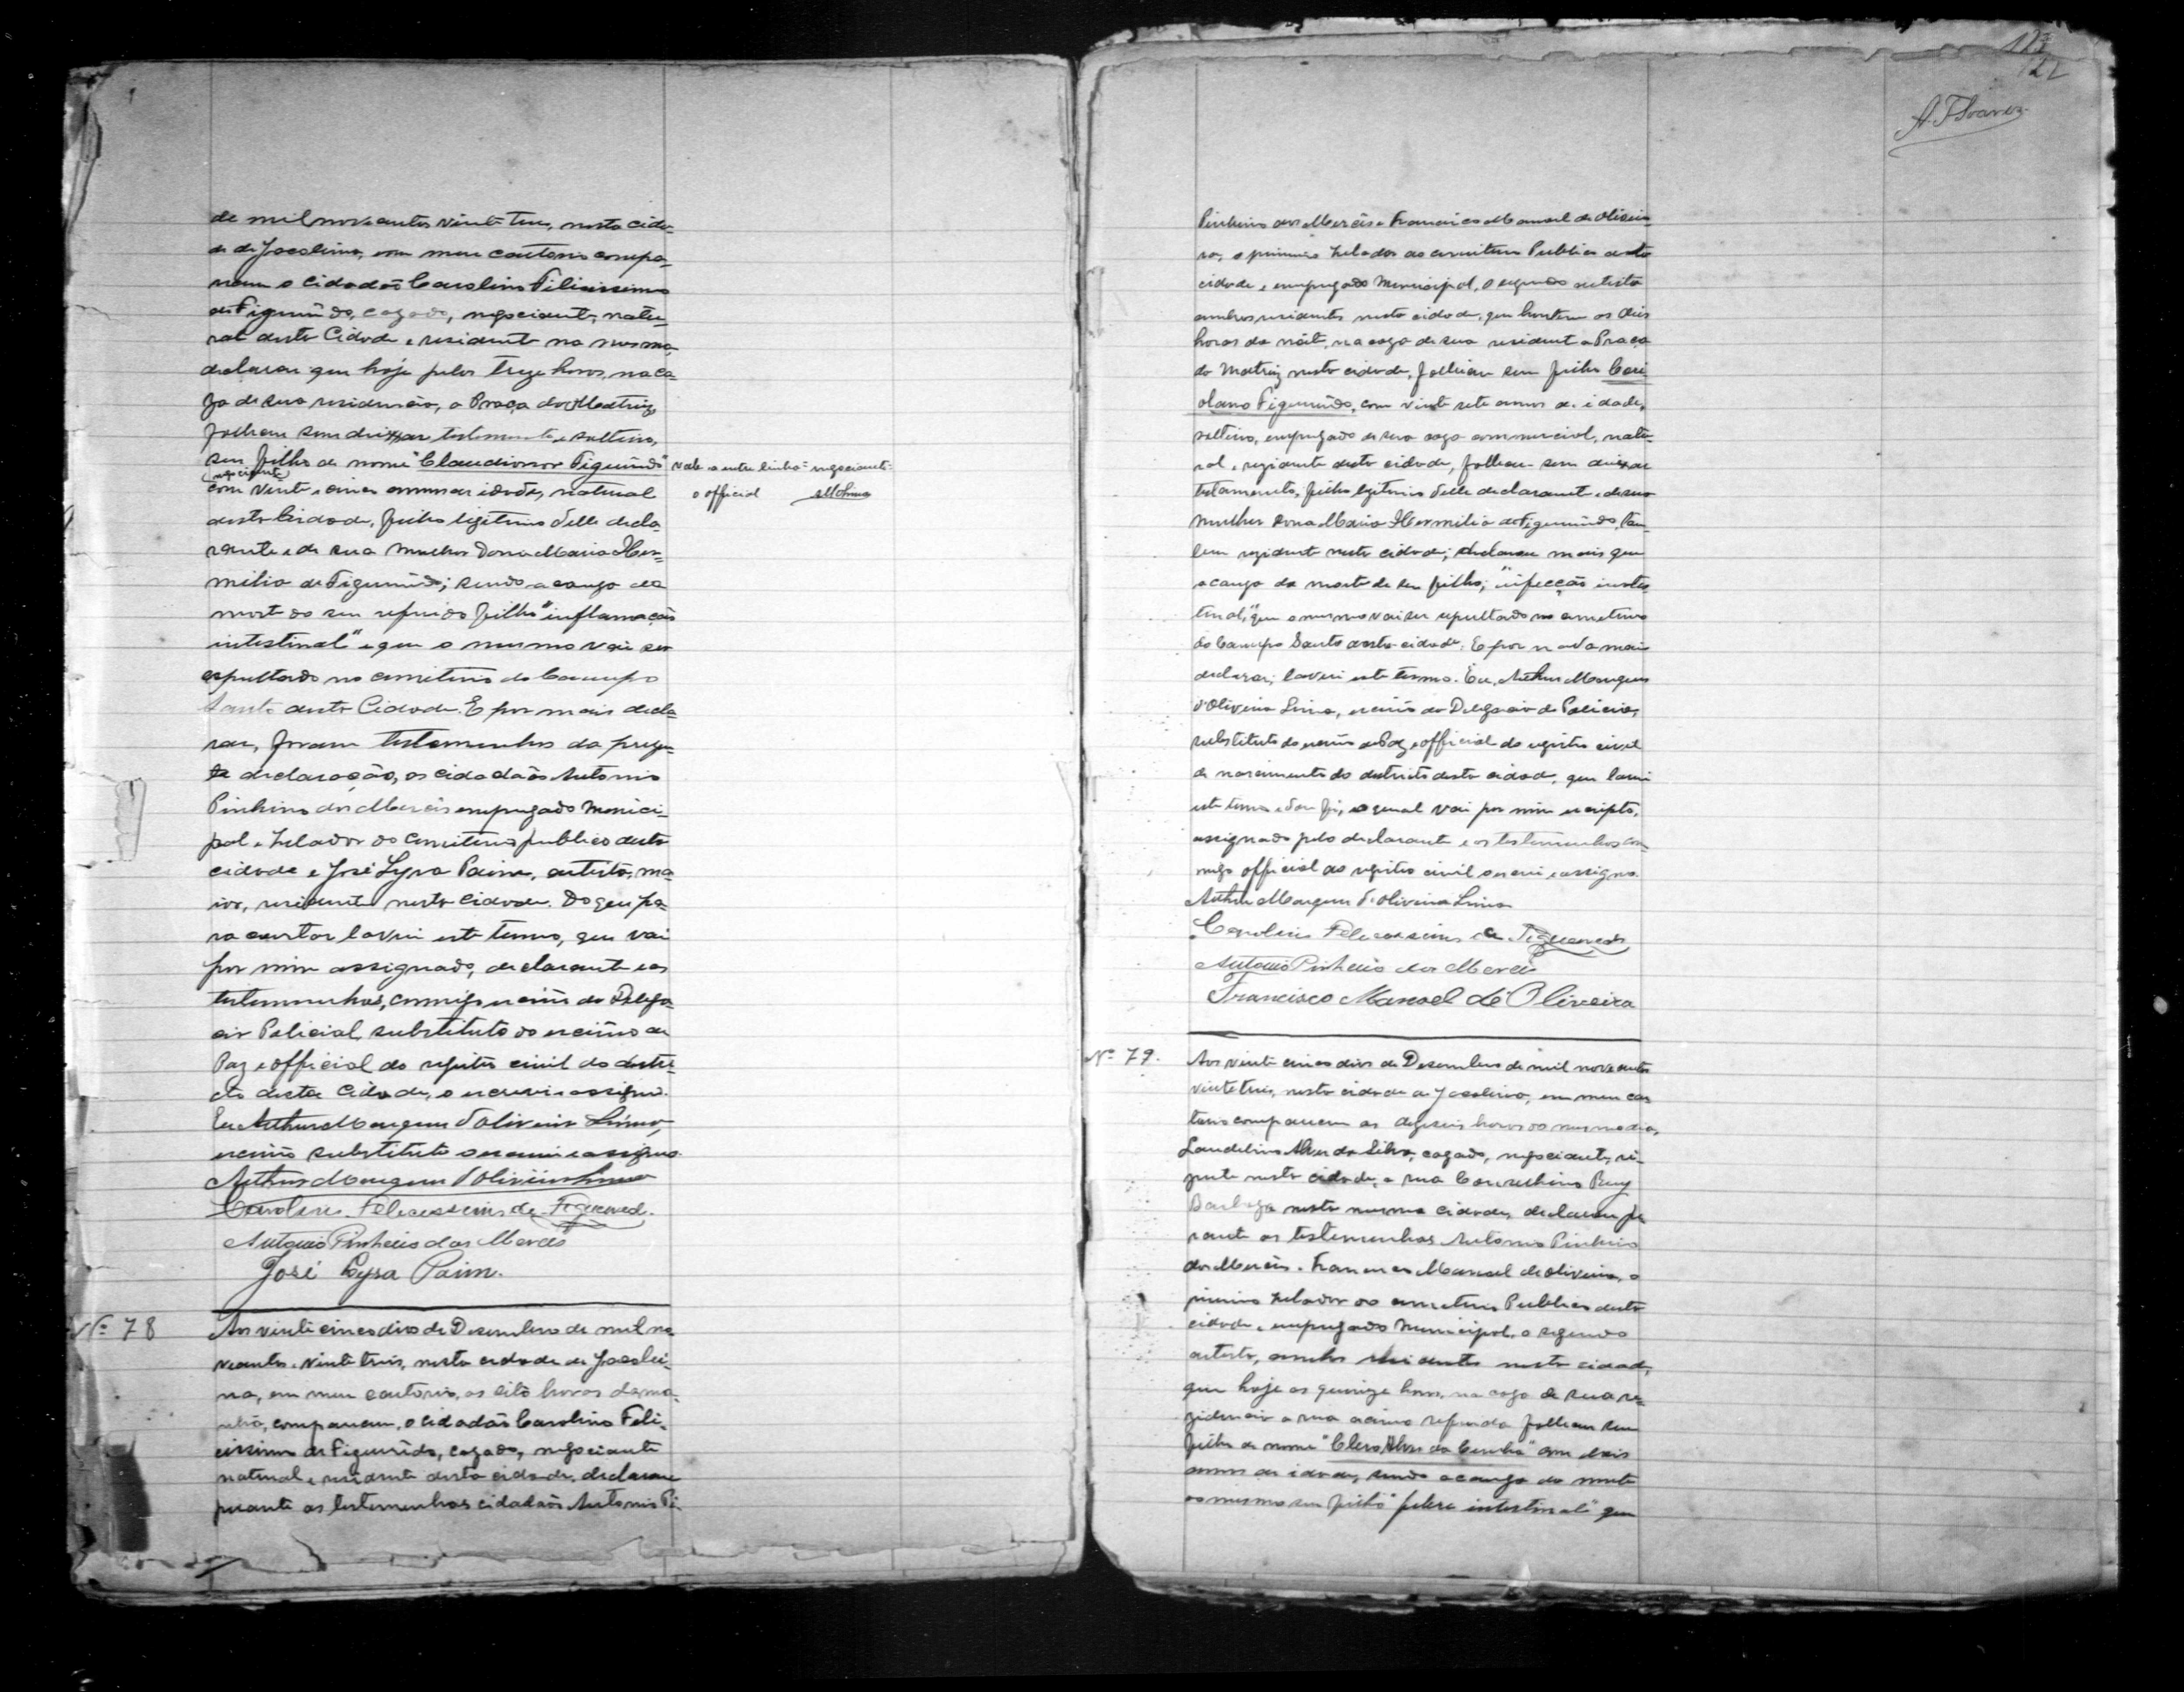 de mil novecentos vinte tres, nesta cida-
de de Jacobina, em meu cartorio compa-
receu o Cidadão Carolino Felicissimo
de Figuerêdo, cazado, negociante, natu-
ral desta Cidade e residente na mesma,
declarou que hoje pelas treze horas, na ca-
za de sua residencia, a Praça da Matriz,
falleceu sem deixar testamento e solteiro,
seu filho de nome "Claudionor Figuerêdo"
(negociante)
com vinte e cinco annos de idade, natural
desta Cidade, filho ligitimo delle decla-
rante e de sua mulher Dona Maria Her-
milia de Figuerêdo; sendo a cauza da
morte do seu referido filho "inflamação
intestinal" e que o mesmo vai ser
sepultado no cemiterio do Campo
Santo desta Cidade. E por mais decla-
rar, foram testemunhas da prezen-
te declaração, os cidadãos Antonio
Pinheiro das Mercês empregado Munici-
pal e Zelador do Cemiterio publico desta
cidade e José Lyra Paim, artista, ma-
ior, residente nesta Cidade. Do que pa-
ra constar lavrei este termo, que vai
por mim assignado, declarante e as
testemunhas, commigo escrivão da Delega-
cia Policial, substituto do escrivão de
Paz e official do registro civil do distri-
cto desta Cidade, o escrevi e assigno.
Eu Arthur Marques d'Oliveira Lima,
escrivão substituto o escrevi e assigno.
Arthur Marques d'Oliveira Lima
Carolino Felicissimo de Figueredo.
Antonio Pinheiro das Mercês
José Lyra Paim.
vale a entre linha = negociante =
o official MLima
Nº 78
Aos vinte cinco dias de Dezembro de mil no-
vecentos e vinte tres, nesta cidade de Jacobi-
na, em meu cartorio, as oito horas da ma-
nhã, compareceu, o cidadão Carolino Feli-
cissimo de Figuerêdo, cazado, negociante
natural e residente desta cidade, declarou
perante as testemunhas cidadãos Antonio Pi-
113
122
A. F. Soares
Pinheiro das Mercês e Francisco Manoel de Olivei-
ra, o primeiro Zelador do cemiterio Publico desta
cidade e empregado Municipal, o segundo artista
ambos residentes nesta cidade, que hontem as dez
horas da noite, na caza de sua residente a Praça
da Matriz nesta cidade, falleceu seu filho Cori-
olano Figuerêdo, com vinte sete annos de idade,
solteiro, empregado de sua caza commercial, natu-
ral e rezidente desta cidade, falleceu sem deixar
testamento, filho legitimo delle declarante e de sua
mulher Dona Maria Hermilia de Figuerêdo, tam-
bem rezidente nesta cidade; declarou mais que
a cauza da morte de seu filho; "infecção intes-
tinal," que o mesmo vai ser sepultado no cemiterio
do Campo Santo desta cidade. E por nada mais
declarar; lavrei este termo. Eu, Arthur Marques
d'Oliveira Lima, escrivão da Delegacia de Policia,
substituto do escrivão de Paz e official do registro civil
de nascimento do districto desta cidade, que lavrei
este termo e dou fé, o qual vai por mim escripto,
assignado pelo declarante e as testemunhas com-
migo official do registro civil o escrevi e assigno.
Arthur Marques d'Oliveira Lima
Carolino Felicissimo de Figueredo
Antonio Pinheiro das Mercês
Francisco Manoel de Oliveira
Nº 79.
Aos vinte cinco dias de Dezembro de mil novecentos
vinte tres, nesta cidade de Jacobina, em meu car-
torio compareceu as dezeseis horas do mesmo dia,
Laudelino Alves da Silva, cazado, negociante, re-
zidente nesta cidade, a rua Conselheiro Ruy
Barboza nesta mesma cidade, declarou pe-
rante as testemunhas Antonio Pinheiro
das Mercês e Francisco Manoel de Oliveira, o
primeiro Zelador do cemiterio Publico desta
cidade e empregado Municipal, o segundo
artista, ambos residentes nesta cidade,
que hoje as quinze horas, na caza de sua re-
zidencia a rua acima referida falleceu seu
filho de nome "Clero Alves da Cunha" com dois
annos de idade, sendo a cauza da morte
do mesmo seu filho "febre intestinal" que